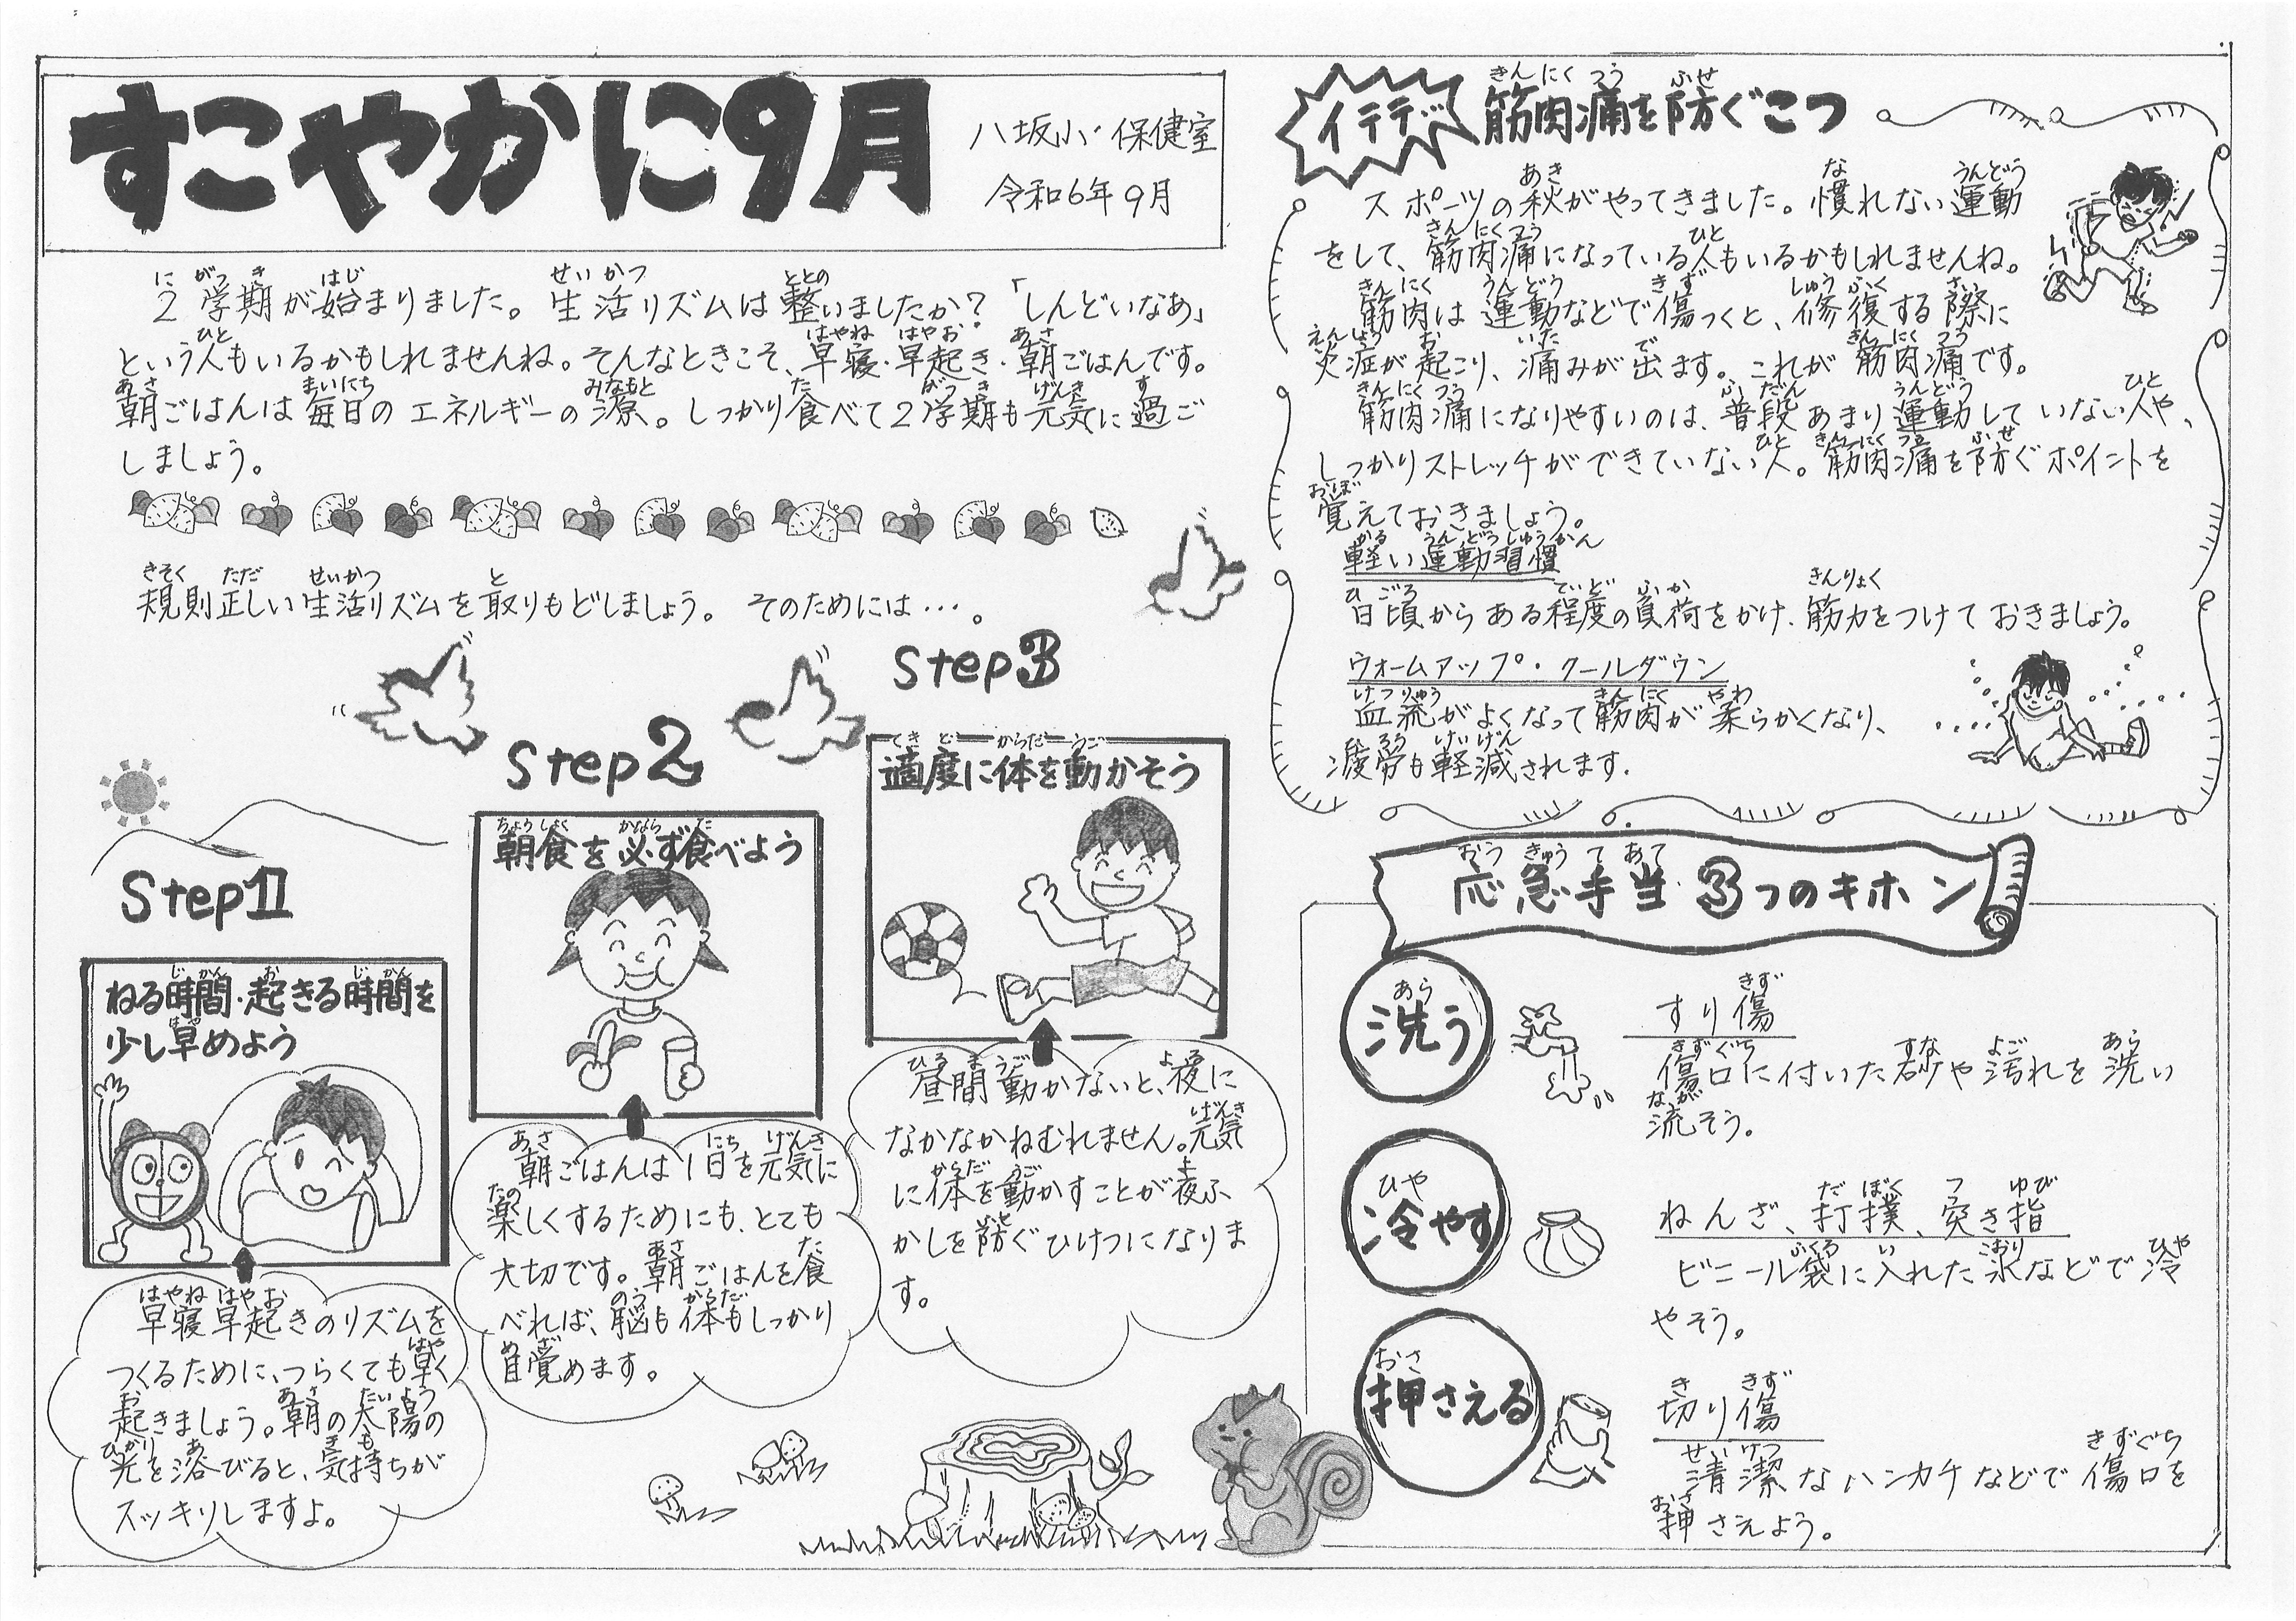 すこやかに9月
八坂小・保健室
令和6年9月
2学期が始まりました。生活リズムは整いましたか？「しんどいなあ」
という人もいるかもしれませんね。そんなときこそ、早寝・早起き・朝ごはんです。
朝ごはんは毎日のエネルギーの源。しっかり食べて2学期も元気に過ご
しましょう。
規則正しい生活リズムを取りもどしましょう。そのためには…。
Step1
ねる時間・起きる時間を
少し早めよう
早寝早起きのリズムを
つくるために、つらくても早く
起きましょう。朝の太陽の
光を浴びると、気持ちが
スッキリしますよ。
Step2
朝食を必ず食べよう
朝ごはんは1日を元気に
楽しくするためにも、とても
大切です。朝ごはんを食
べれば、脳も体もしっかり
目覚めます。
Step3
適度に体を動かそう
昼間動かないと、夜に
なかなかねむれません。元気
に体を動かすことが夜ふ
かしを防ぐひけつになりま
す。
イテテデ
筋肉痛を防ぐこつ
スポーツの秋がやってきました。慣れない運動
をして、筋肉痛になっている人もいるかもしれませんね。
筋肉は運動などで傷つくと、修復する際に
炎症が起こり、痛みが出ます。これが筋肉痛です。
筋肉痛になりやすいのは、普段あまり運動していない人や、
しっかりストレッチができていない人。筋肉痛を防ぐポイントを
覚えておきましょう。
軽い運動習慣
日頃からある程度の負荷をかけ、筋力をつけておきましょう。
ウォームアップ・クールダウン
血流がよくなって筋肉が柔らかくなり、
疲労も軽減されます.
応急手当 3つのキホン
洗う
すり傷
傷口に付いた砂や汚れを洗い
流そう。
冷やす
ねんざ、打撲、突き指
ビニール袋に入れた氷などで冷
やそう。
押さえる
切り傷
清潔なハンカチなどで傷口を
押さえよう。